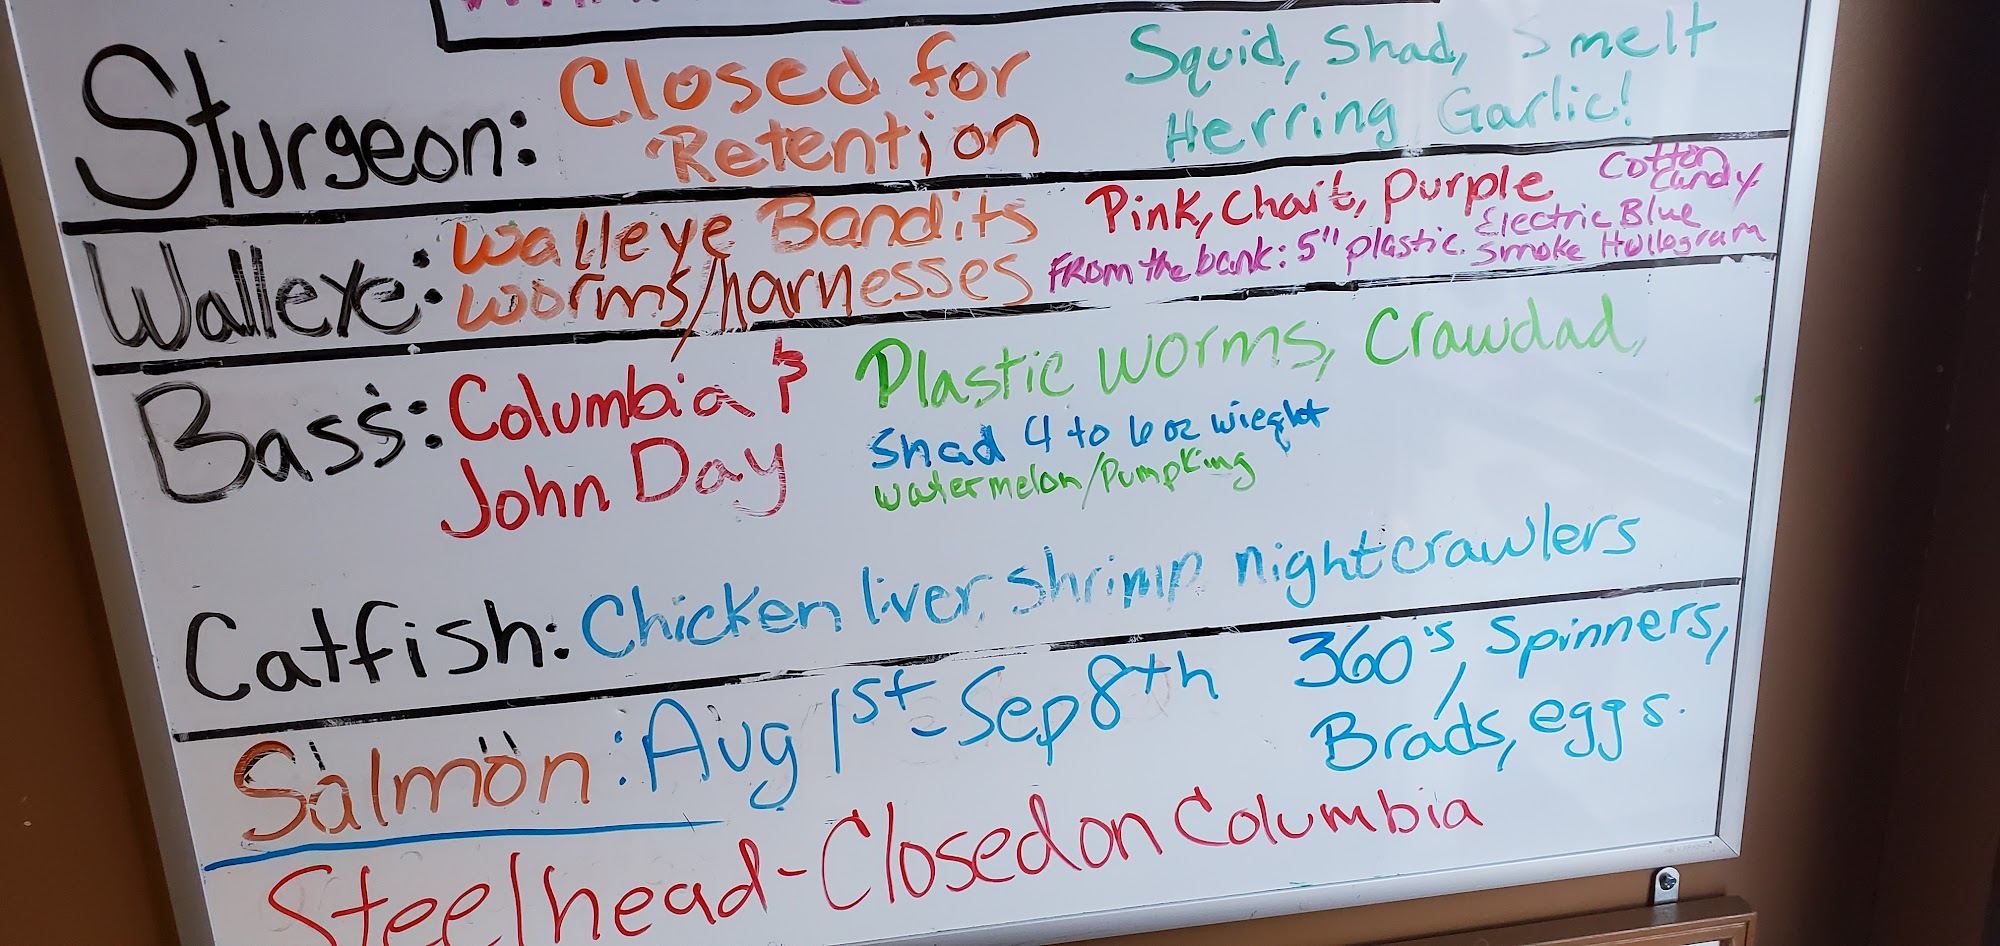 Sturgeon: Closed for Retention Squid, Shad, Smelt
Herring Garlic!
Walleye: Walleye Bandits
worms/harnesses
Pink, Chart, purple Cotton Candy
From the bank: 5" plastic. Electric Blue
Smoke Hollogram
Bass: Columbia &
John Day
Plastic worms, Crawdad,
Shad 4 to 6 oz wieght
watermelon/Pumpking
Catfish: Chicken liver, shrimp nightcrawlers
Salmon: Aug 1st - Sep 8th 360's, Spinners,
Brads, eggs.
Steelhead - Closed on Columbia